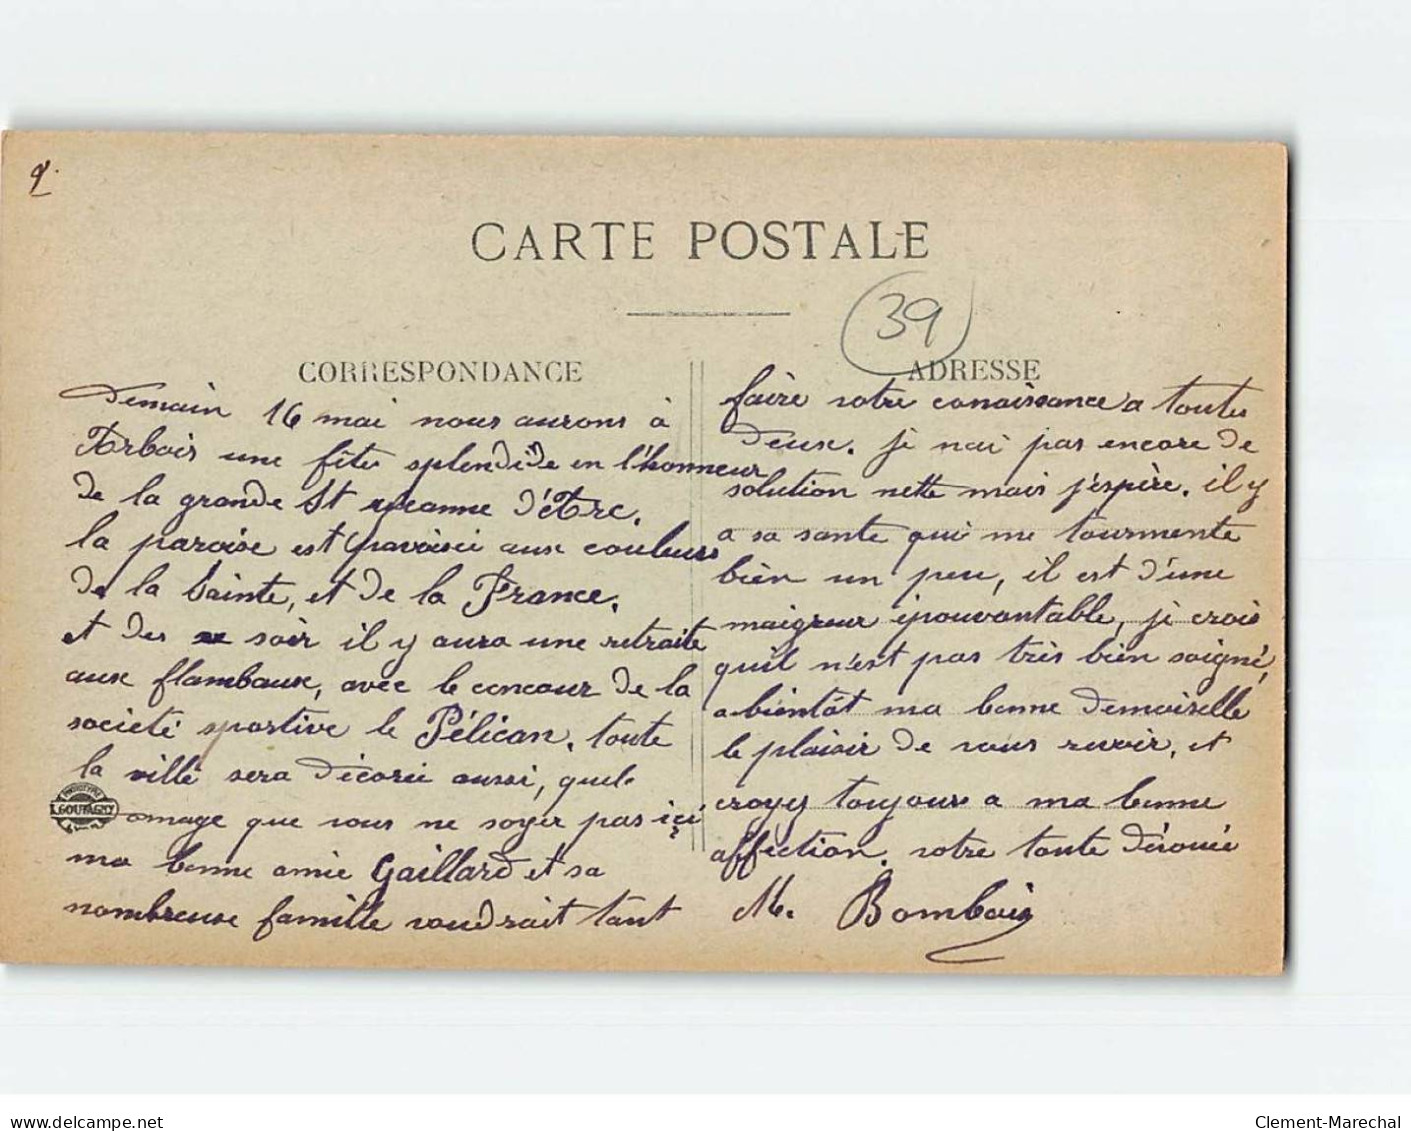 2.
CARTE POSTALE
39
CORRESPONDANCE
Demain 16 mai nous aurons à
Arbois une fête splendide en l'honneur
de la grande St Jeanne d'Arc.
la paroise est pavoisée aux couleurs
de la Sainte, et de la France.
et des soir il y aura une retraite
aux flambaux, avec le concour de la
societé sportive le Pélican. toute
la ville sera décorée aussi, quel
omage que vous ne soyer pas içi
ma bonne amie Gaillard et sa
nombreuse famille voudrait tant
GOUTAGNY
ADRESSE
faire votre conaissance a toutes
deux. je nai pas encore de
solution nette mais j'espère. il y
a sa sante qui me tourmente
bien un peu, il est d'une
maigreur épouvantable, je crois
quil n'est pas très bien soigné,
a bientôt ma bonne Demoiselle
le plaisir de vous revoir, et
croyez toujours a ma bonne
affection. votre toute dévouée
M. Bombois
www.delcampe.net
Clement-Marechal